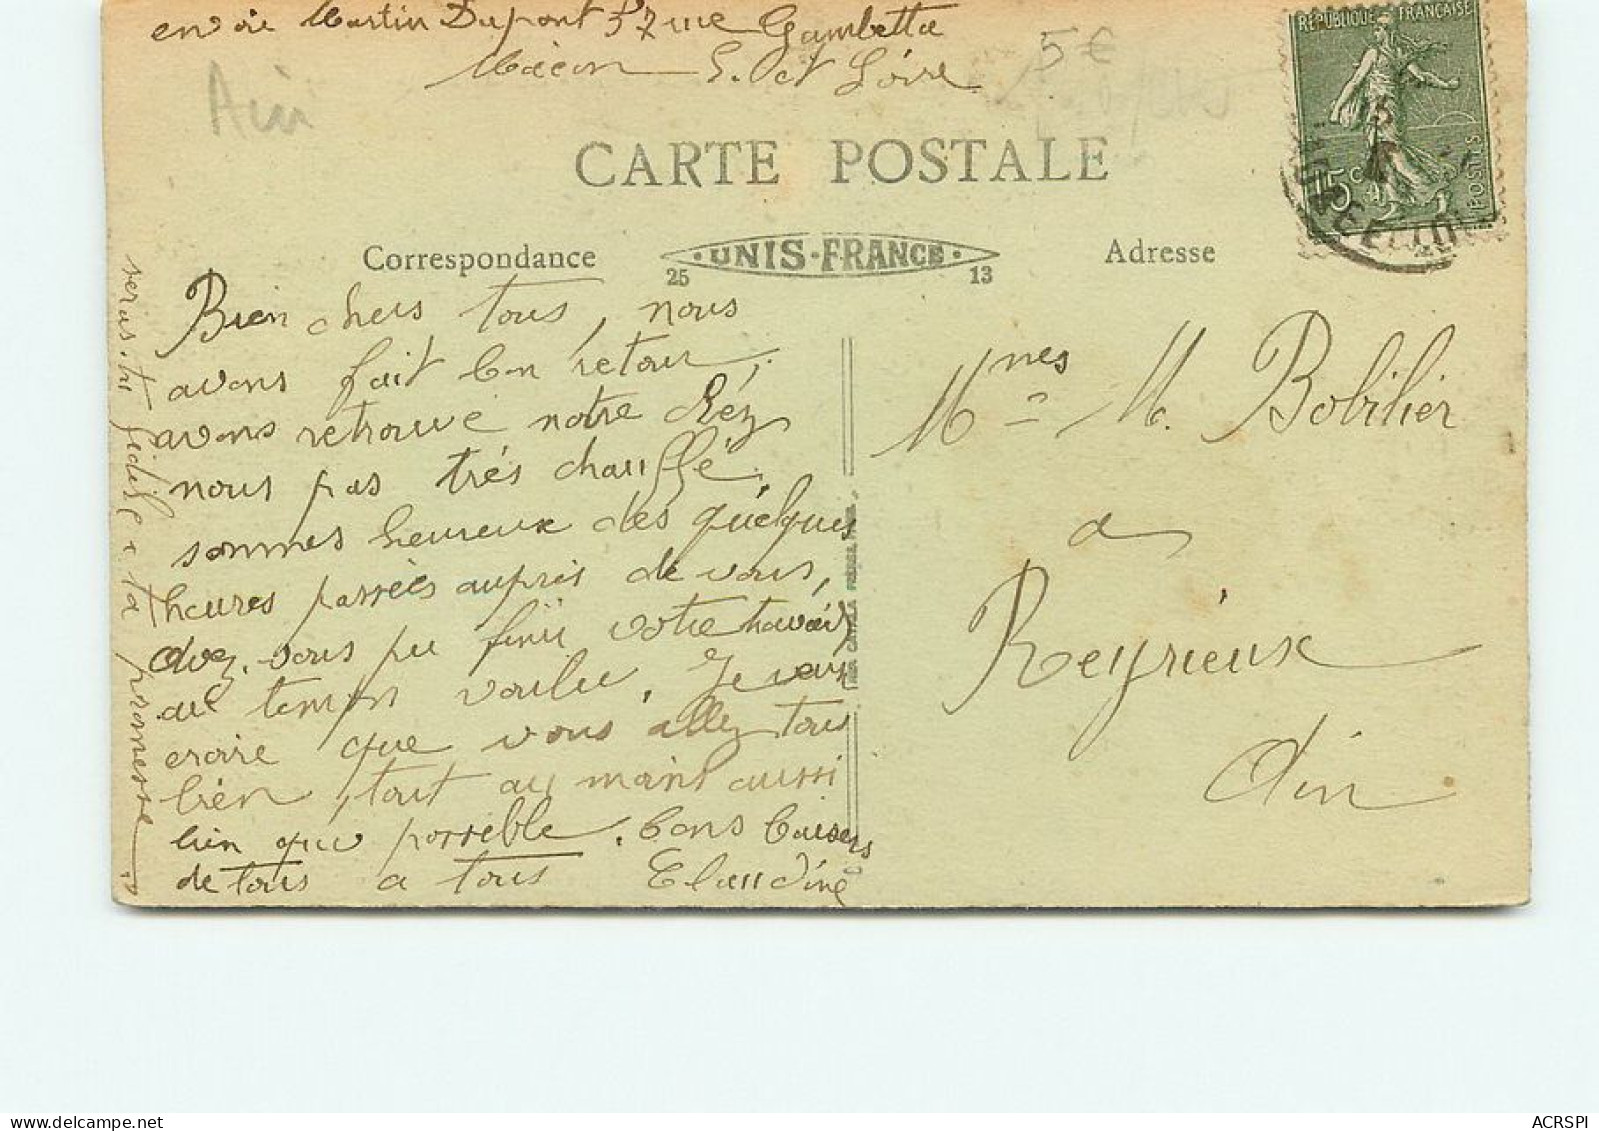 envoi Martin Dupont 57 rue Gambetta
Mâcon S. et Loire
5€
Ain
REPUBLIQUE FRANÇAISE
15c
POSTES
CARTE POSTALE
Correspondance
UNIS-FRANCE
25 13
Adresse
Bien chers tous, nous
avons fait bon retour,
avons retrouvé notre chéz
nous pas trés chauffé,
sommes heureux des quelques
heures passées auprès de vous,
avez-vous pu finir votre travail
au temps voulu. Je veux
croire que vous allez tous
bien, tout au moins aussi
bien que possible. bons baisers
de tous a tous Claudine
seras-tu fidèle a ta promesse
Mmes M. Bobilier
a
Reyrieux
Ain
ACRSPI